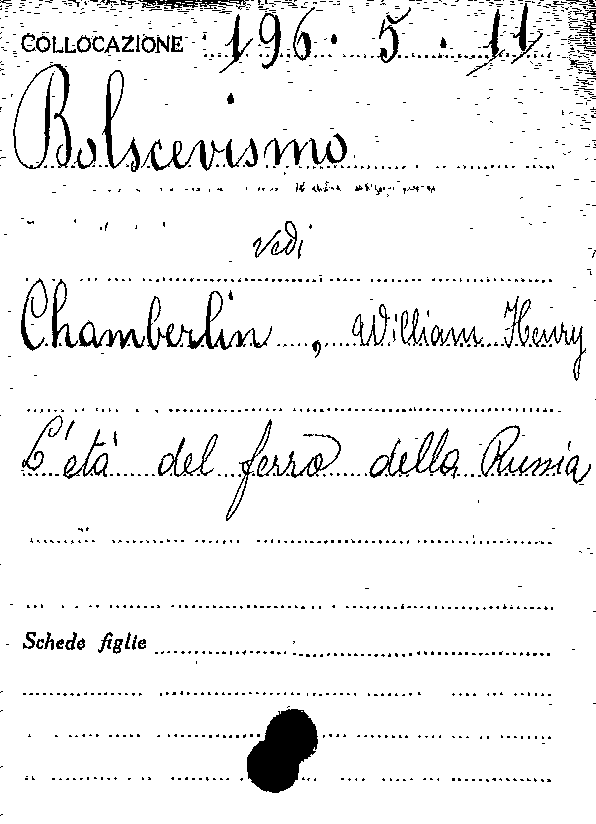 COLLOCAZIONE 196. 5. 11
Bolscevismo
vedi
Chamberlin, William Henry
L'età del ferro della Russia
Schede figlie